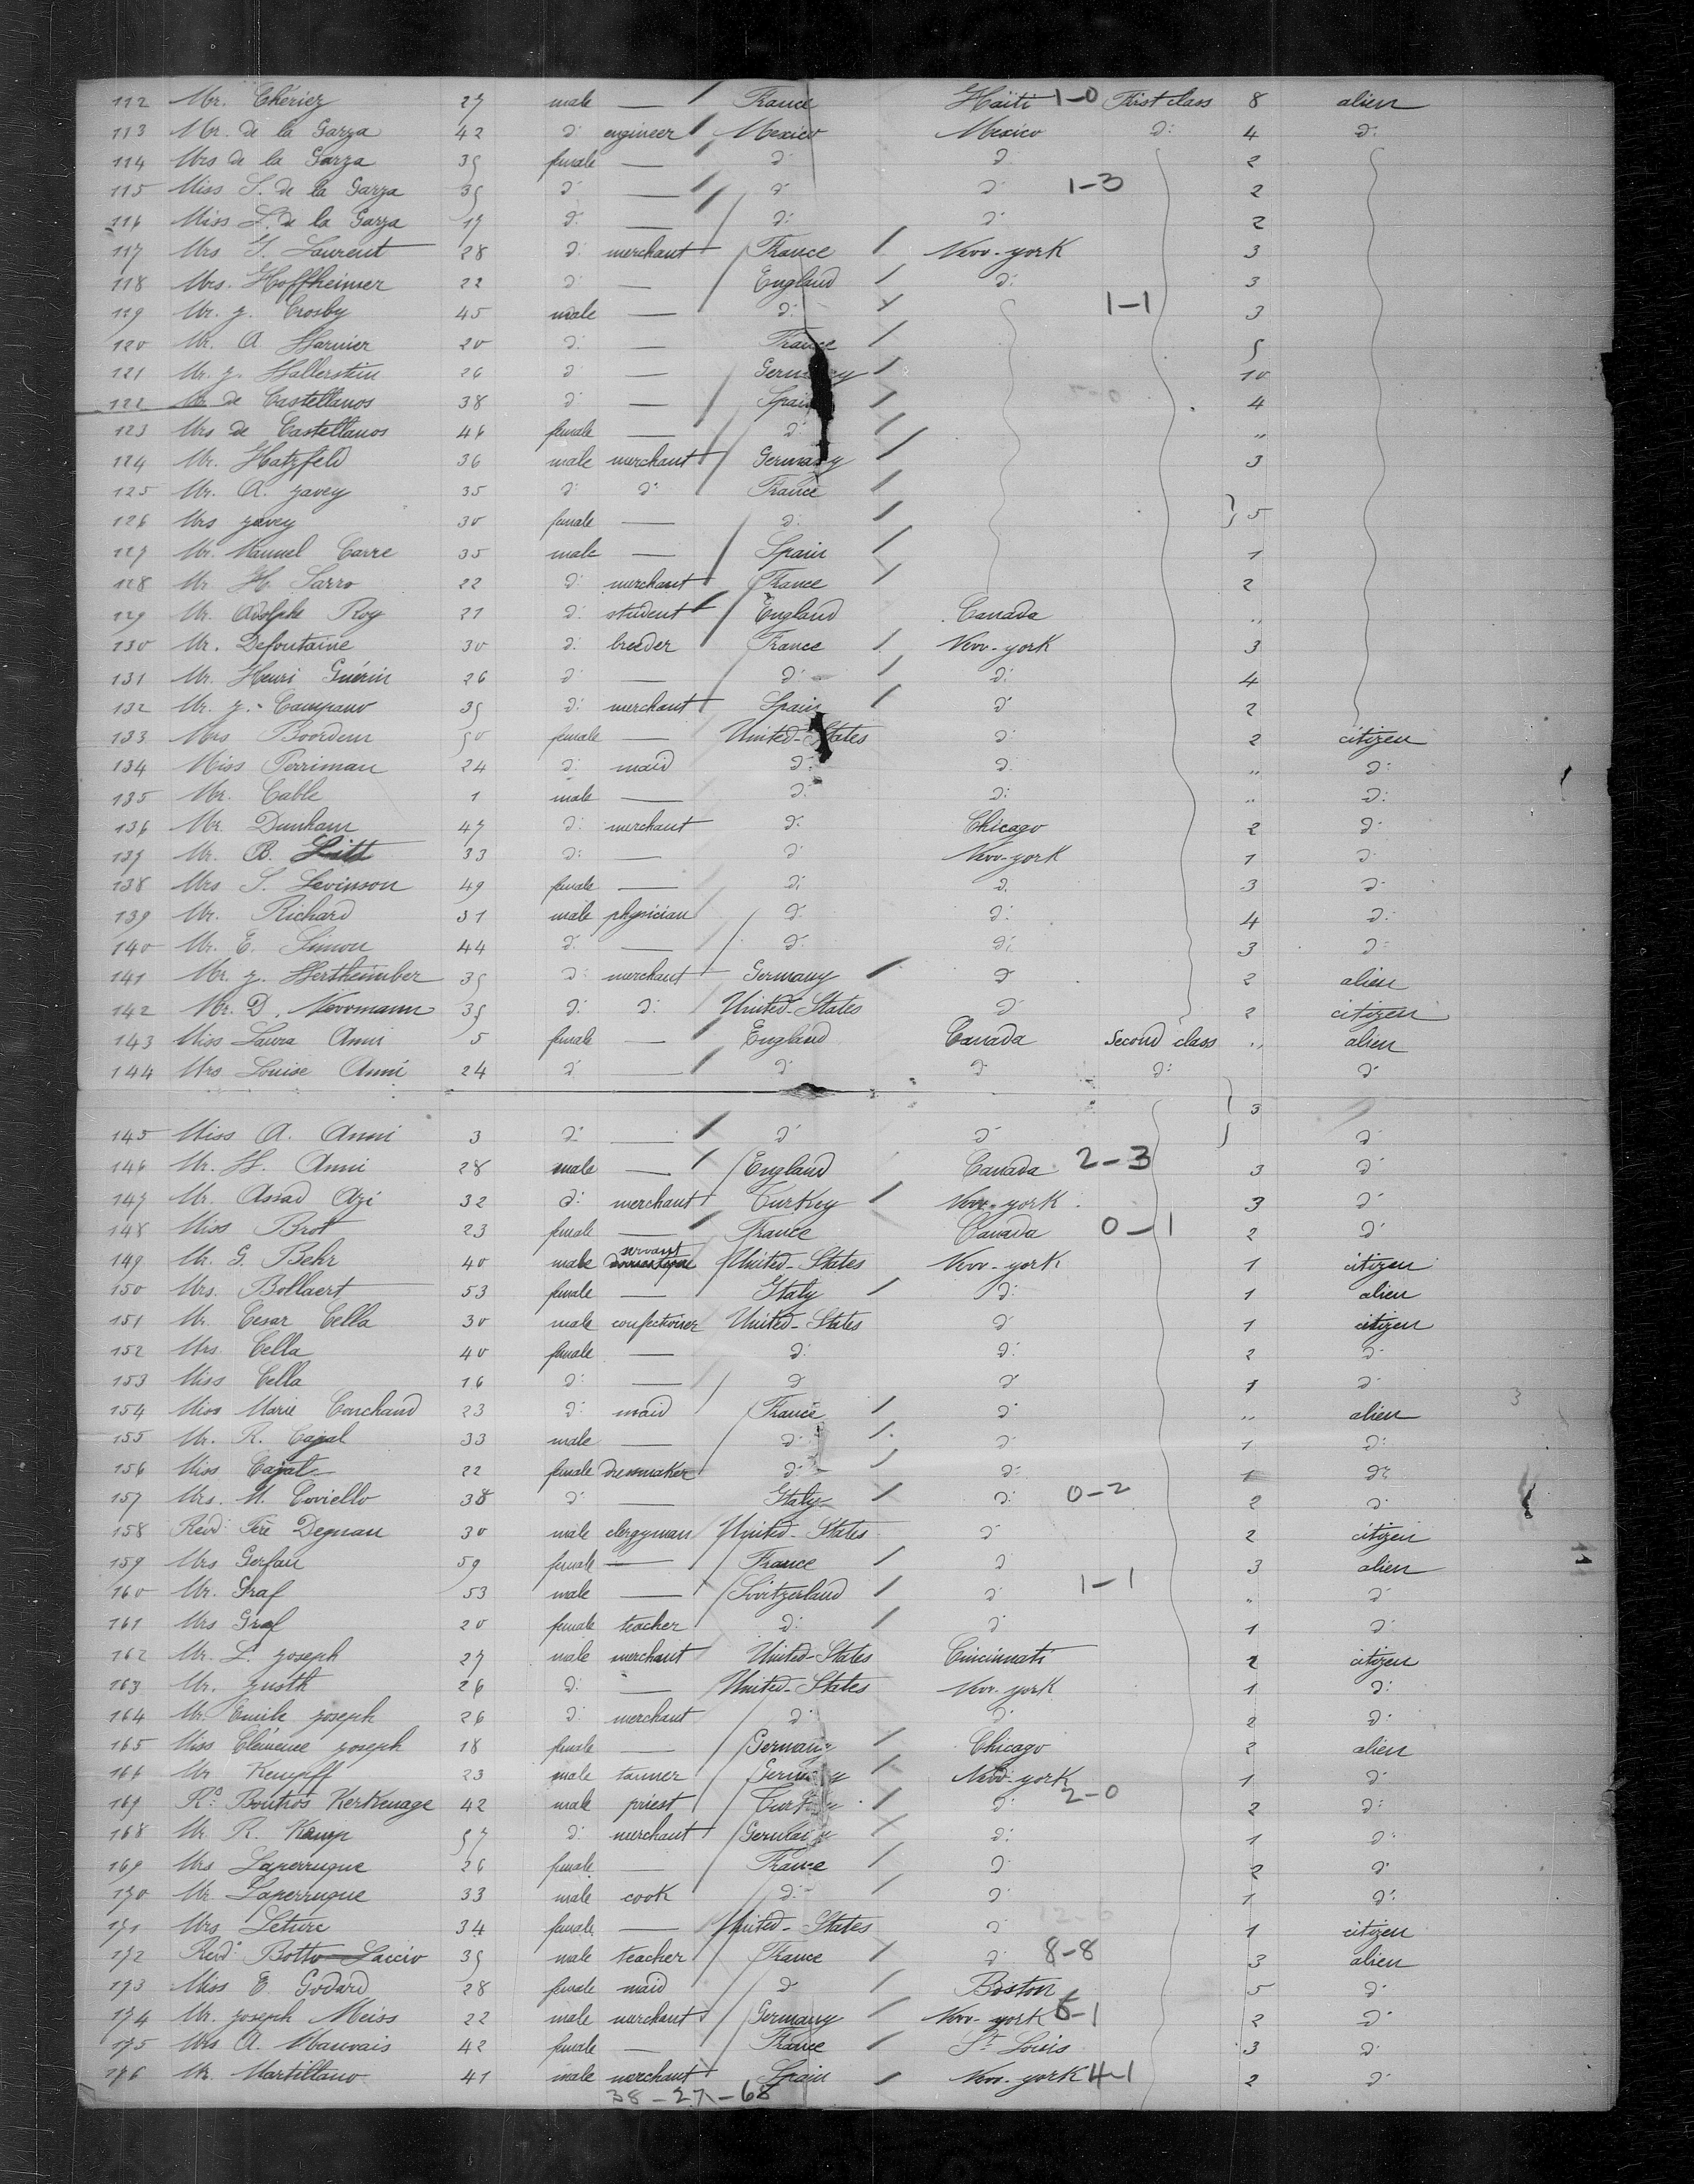 112 Mr. Chériez 27 male — France Haïti 1-0 First class 8 alien
113 Mr. de la Garza 42 d: engineer Mexico Mexico d: 4 d:
114 Mrs de la Garza 35 female — d: d: 2
115 Miss S. de la Garza 35 d: — d: d: 1-3 2
116 Miss L. de la Garza 17 d: — d: d: 2
117 Mrs G. Laurent 28 d: merchant France New-york 3
118 Mrs. Hoffheimer 22 d: — England d: 3
119 Mr. J. Crosby 45 male — d: 1-1 3
120 Mr. A. Harnier 20 d: — France 5
121 Mr. J. Hallerstein 26 d: — Germany 10
122 Mr de Castellanos 38 d: — Spain 4
123 Mrs de Castellanos 46 female — d: "
124 Mr. Hatzfeld 36 male merchant Germany 3
125 Mr. A. Javey 35 d: d: France
126 Mrs Javey 30 female — d: 5
127 Mr. Manuel Carre 35 male — Spain 1
128 Mr H. Sarro 22 d: merchant France 2
129 Mr. Adolphe Roy 21 d: student England Canada "
130 Mr. Defontaine 30 d: breeder France New-york 3
131 Mr. Henri Guérin 26 d: — d: d: 4
132 Mr. J. Campano 35 d: merchant Spain d: 2
133 Mrs Boordem 50 female — United-States d: 2 citizen
134 Miss Perriman 24 d: maid d: d: " d:
135 Mr. Cable 1 male — d: d: " d:
136 Mr. Dunham 47 d: merchant d: Chicago 2 d:
137 Mr. B. Litt 33 d: — d: New-york 1 d:
138 Mrs S. Levinson 49 female — d: d: 3 d:
139 Mr. Richard 31 male physician d: d: 4 d:
140 Mr. E. Simon 44 d: — d: d: 3 d:
141 Mr. J. Hertheimber 35 d: merchant Germany d: 2 alien
142 Mr. D. Newmann 35 d: d: United-States d: 2 citizen
143 Miss Laura Anni 5 female — England Canada second class " alien
144 Mrs Louise Anni 24 d: — d: d: d: d:
3
145 Miss A. Anni 3 d: — d: d: d:
146 Mr. H. Anni 28 male — England Canada 2-3 3 d:
147 Mr. Assad Azi 32 d: merchant Turkey New-york 3 d:
148 Miss Brot 23 female — France Canada 0-1 2 d:
149 Mr. G. Behr 40 male servant United-States New-york 1 citizen
150 Mrs. Bollaert 53 female — Italy d: 1 alien
151 Mr. Cesar Cella 30 male confectioner United-States d: 1 citizen
152 Mrs Cella 40 female — d: d: 2 d:
153 Miss Cella 16 d: — d: d: 1 d:
154 Miss Marie Conchaud 23 d: maid France d: " alien
155 Mr. R. Cazal 33 male — d: d: 1 d:
156 Miss Cazal 22 female dressmaker d: d: 1 d:
157 Mrs. M. Coviello 38 d: — Italy d: 0-2 2 d:
158 Revd. Degnan 30 male clergyman United-States d: 2 citizen
159 Mrs Gerfau 59 female — France d: 3 alien
160 Mr. Graf 53 male — Switzerland d: 1-1 " d:
161 Mrs Graf 20 female teacher d: d: 1 d:
162 Mr. L. Joseph 27 male merchant United-States Cincinnati 2 citizen
163 Mr. Justh 26 d: — United-States New-york 1 d:
164 Mr. Emile Joseph 26 d: merchant d: d: 2 d:
165 Miss Clémence Joseph 18 female — Germany Chicago 2 alien
166 Mr Kempff 23 male tanner Germany New-york 1 d:
167 Rd. Boutros Kerkenage 42 male priest Turkey d: 2-0 2 d:
168 Mr R. Kamp 57 d: merchant Germany d: 1 d:
169 Mrs Laperruque 26 female — France d: 2 d:
170 Mr. Laperruque 33 male cook d: d: 1 d:
171 Mrs Leturc 34 female — United-States d: 1 citizen
172 Revd. Botto-Laccio 35 male teacher France d: 8-8 3 alien
173 Miss E. Godard 28 female maid d: Boston 5 d:
174 Mr. Joseph Meiss 22 male merchant Germany New-york 5-1 2 d:
175 Mrs A. Mauvais 42 female — France St Louis 3 d:
176 Mr. Martillano 41 male merchant Spain New-york 4-1 2 d:
38-27-68